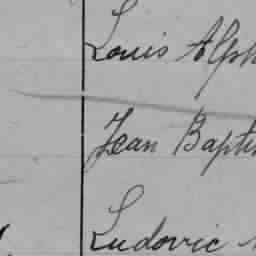 Louis Alph
Jean Bapti
Ludovic